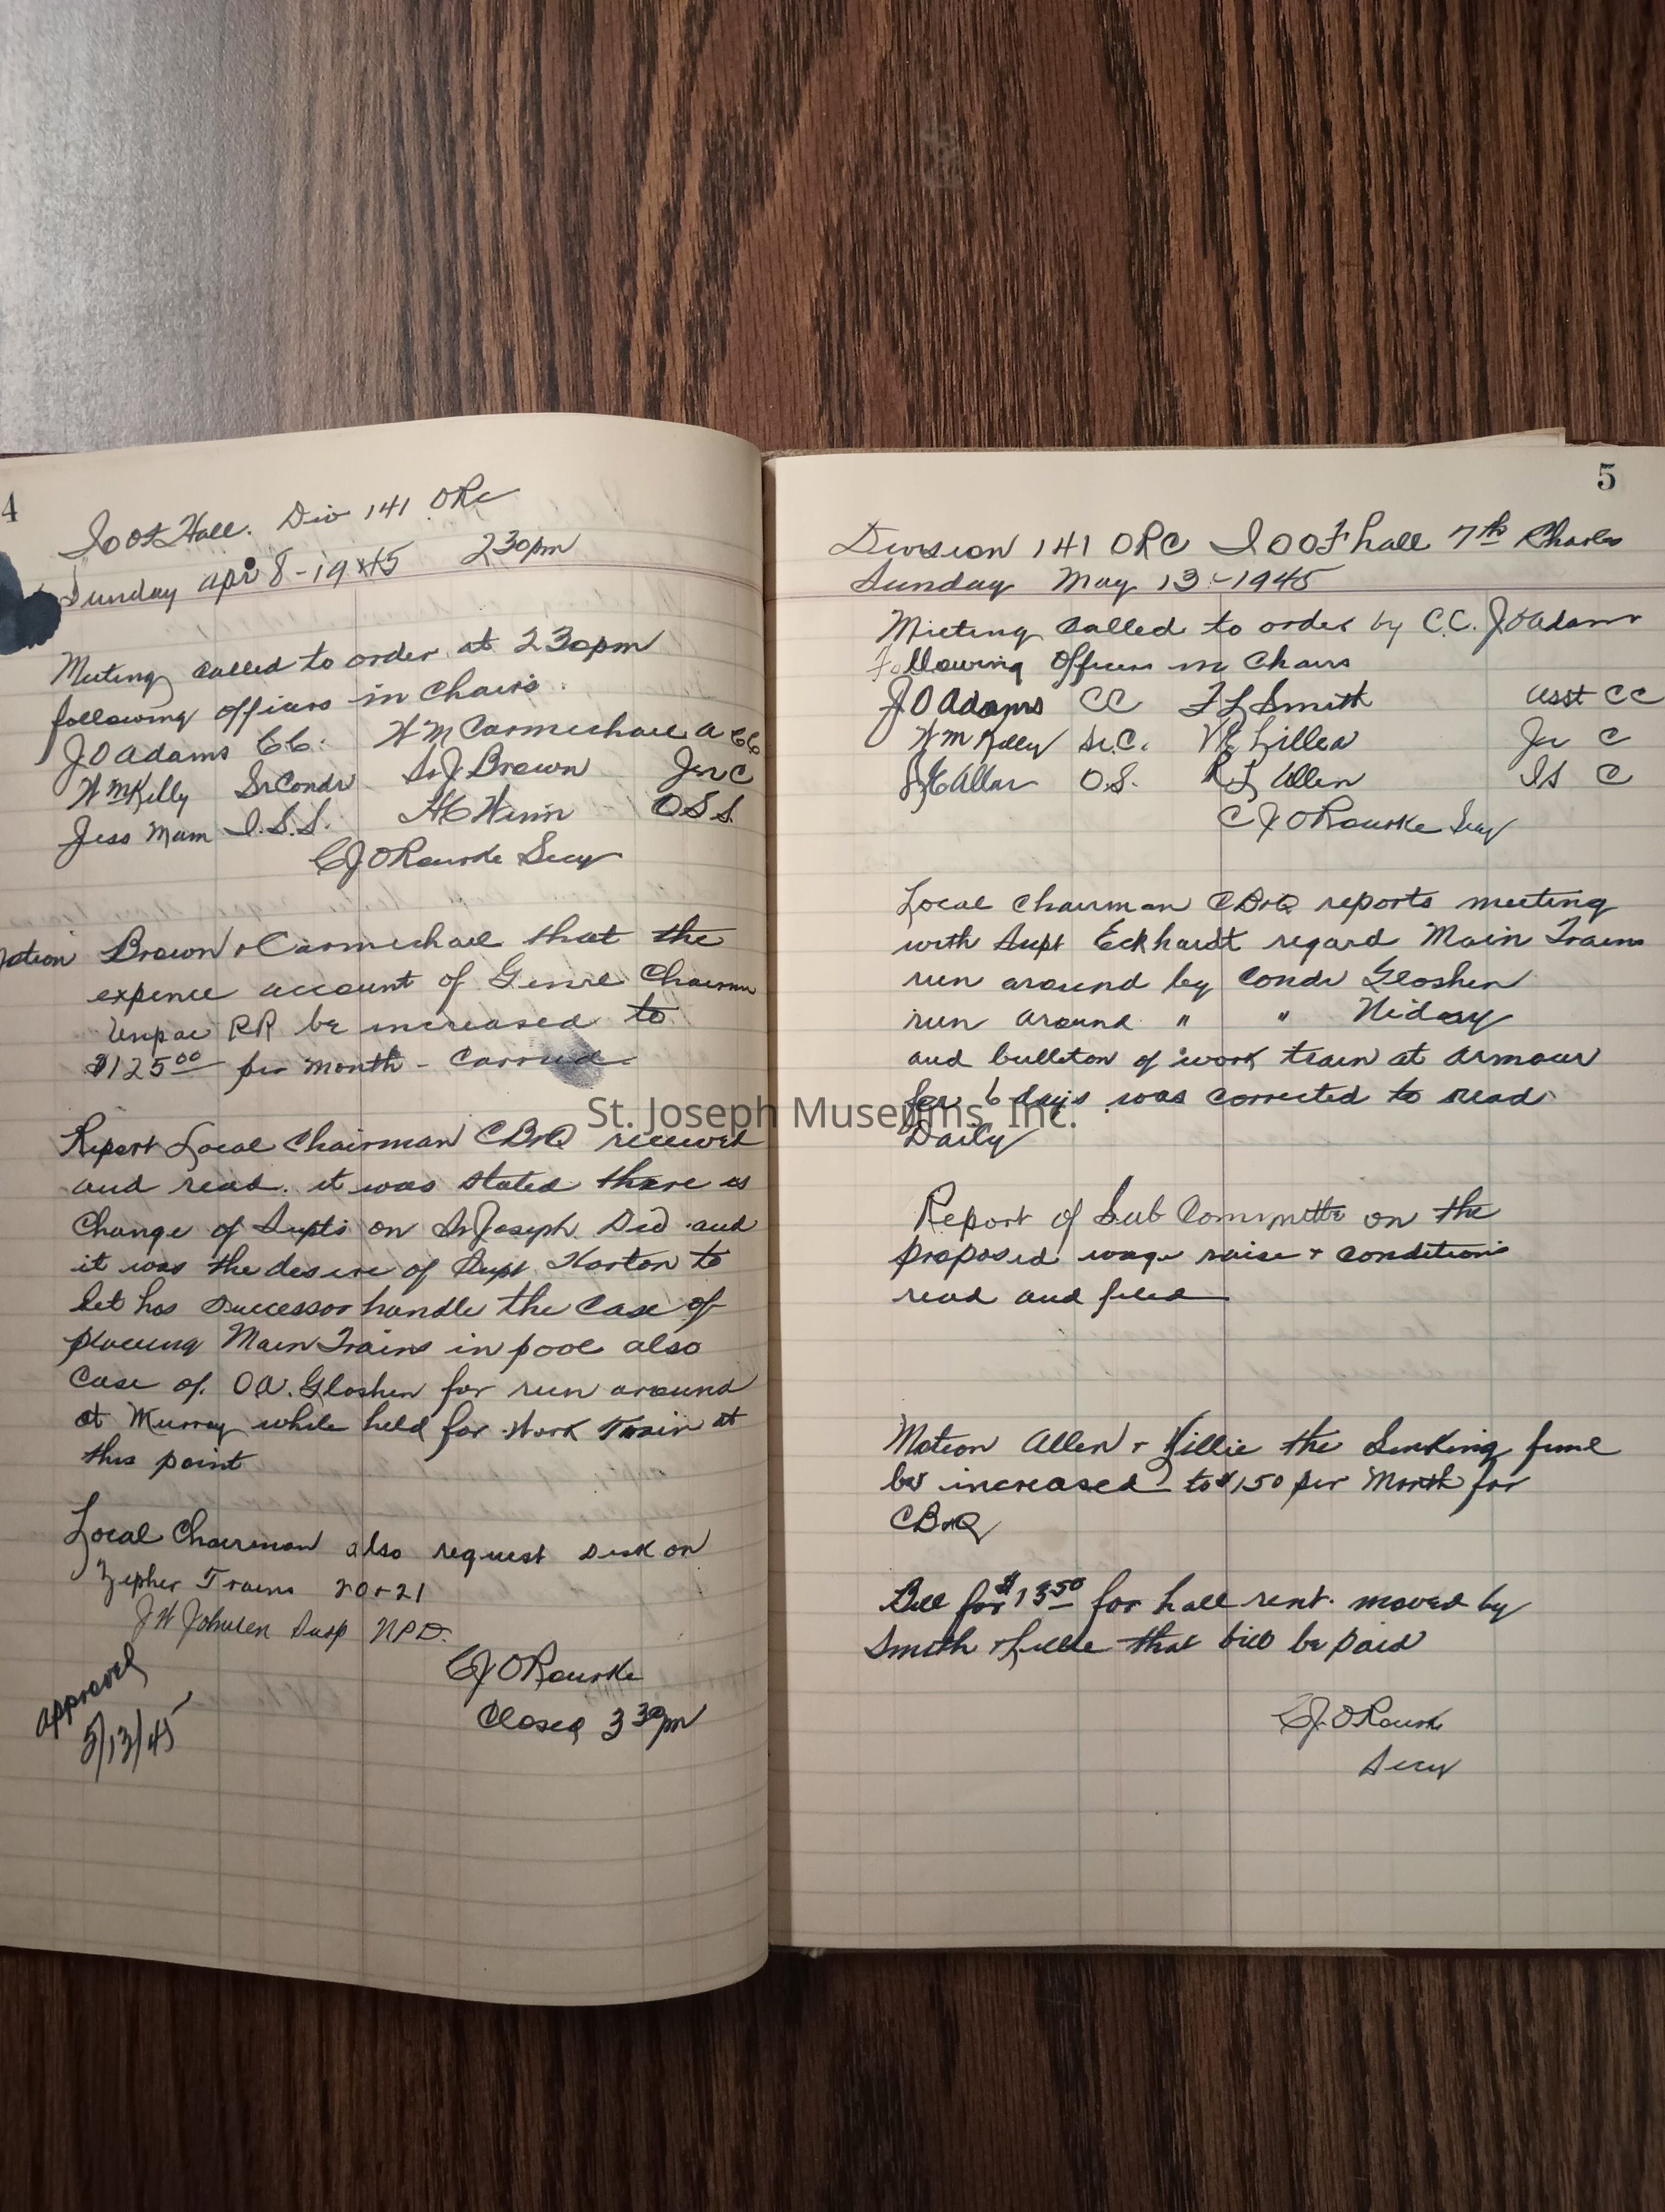 4
IOOF Hall. Div 141 ORC
Sunday Apr 8-1945 230pm
Meeting called to order at 230pm
following officers in Chairs.
J O Adams CC. W M Carmichael A CC
W M Kelly Sr Condr S J Brown Jr C
Jess I.S.S. H C Winn O S S.
C J O Rourke Secy
Motion Brown & Carmichael that the
expence account of Genrl Chairmn
Unpac RR be increased to
$125.00 per month - Carried
Report Local Chairman CB&Q received
and read. it was stated there is
Change of Supts on St Joseph Div and
it was the desire of Supt Horton to
let his successor handle the case of
placing Main Trains in pool also
Case of O A. Gloshen for run around
at Murray while held for Work Train at
this point
Local Chairman also request desk on
Zepher Trains 20 & 21
J W Johnsen Susp NPD.
C J O Rourke
Closed 330pm
Approved
5/13/45
5
Division 141 ORC IOOF hall 7th Charles
Sunday May 13-1945
Meeting called to order by C.C. J O Adams
Following Officers in Chairs
J O Adams CC F L Smith Asst CC
W M Kelly Sr.C. Jr C
O.S. R L Allen IS C
C J O Rourke Secy
Local Chairman CB&Q reports meeting
with Supt Eckhardt regard Main Trains
run around by Condr Gloshen
run around " " Niday
and bulleton of work train at Armour
for 6 days was corrected to read
Daily
Report of Sub Committe on the
proposed wage raise & conditions
read and filed
Motion Allen & Lillie the Sinking fund
be increased to $150 per Month for
CB&Q
Bill for $13.50 for hall rent. moved by
Smith & Lillie that bill be paid
C J. O Rourk
Secy
St. Joseph Museums, Inc.